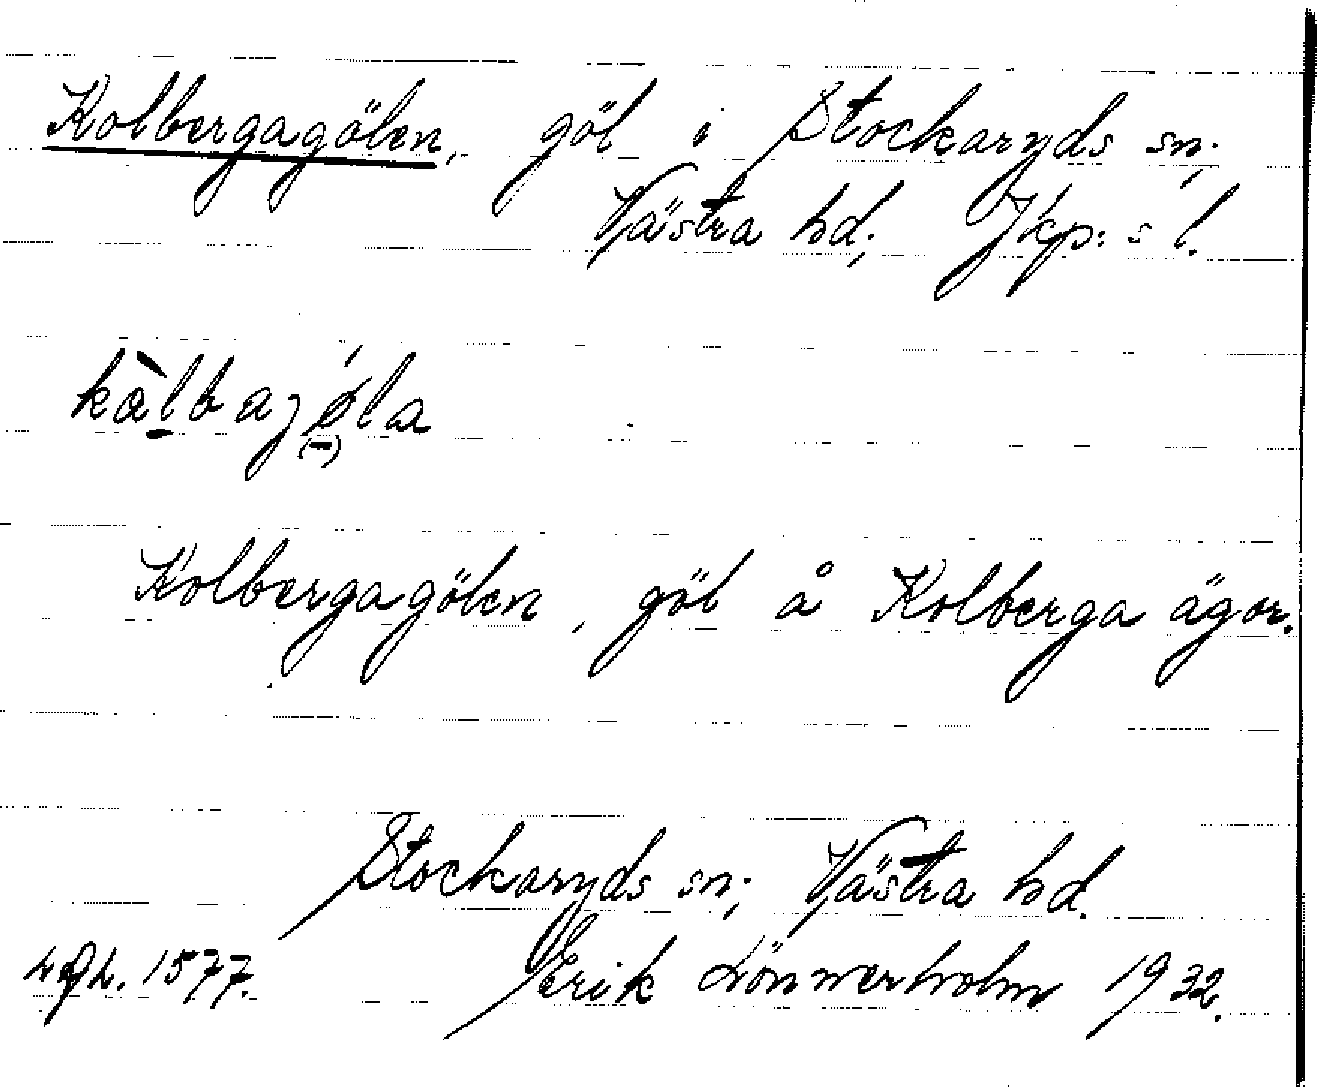 Kolbergagölen, göl i Stockaryds sn;
Västra hd; Jkp:s l.
kàlbajǿla
Kolbergagölen, göl å Kolberga ägor.
Stockaryds sn; Västra hd.
1577. Erik Lönnerholm 1932.